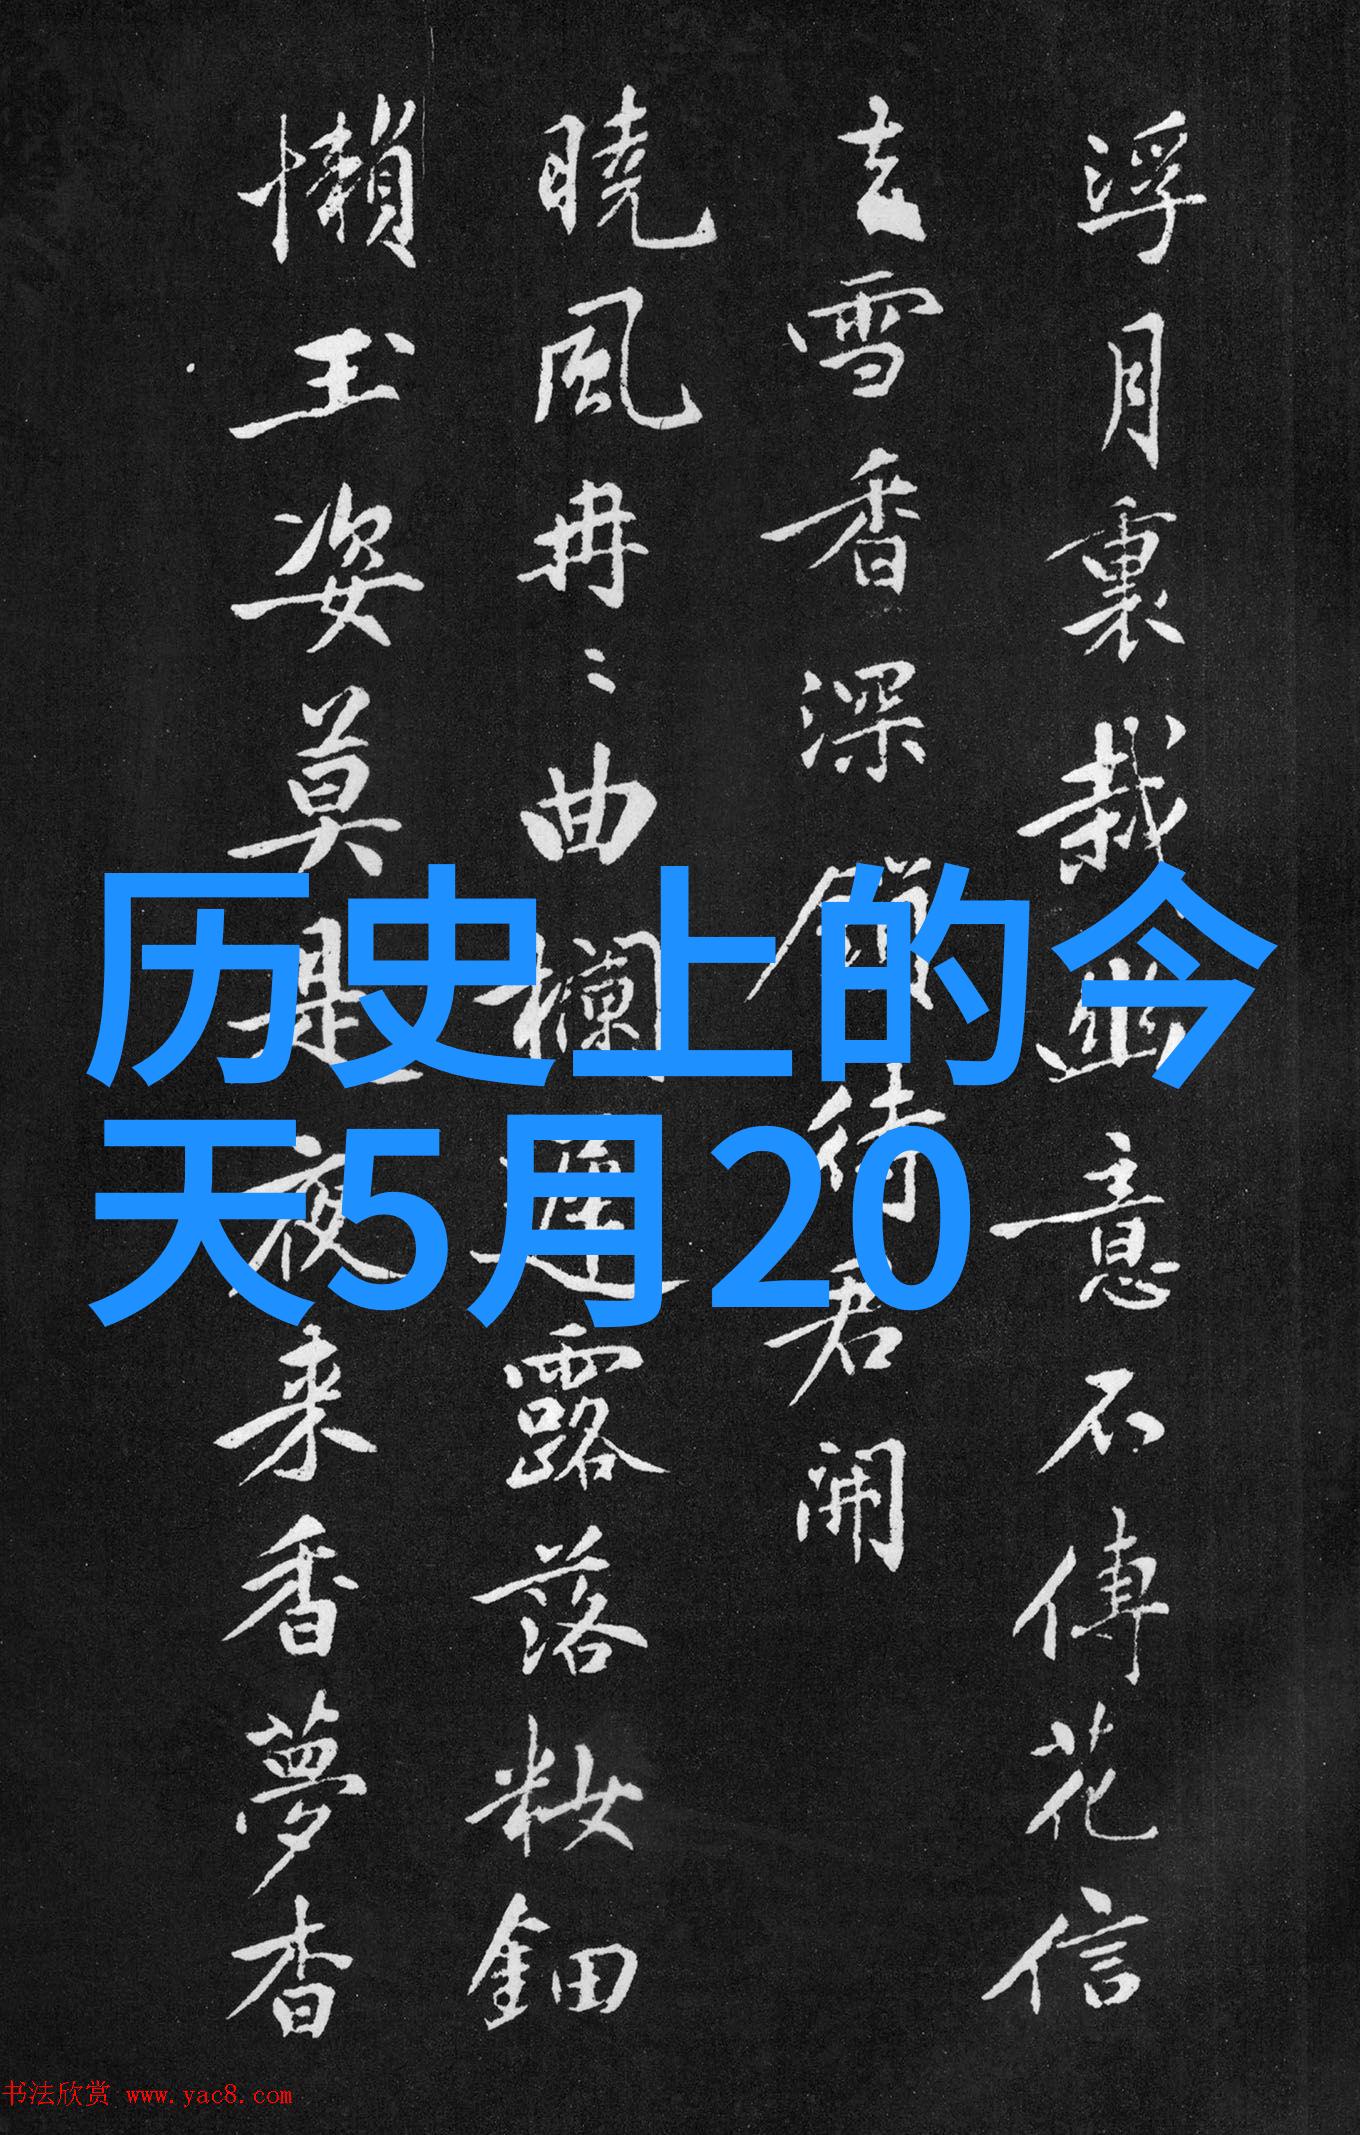 历史上的今
天5月20
浮月裏栽幽意不傳花信
雪香深待君開
曉風冉〻曲欄露落粧鈿
懶玉姿莫是夜来香夢杳
书法欣赏 www.yac8.com